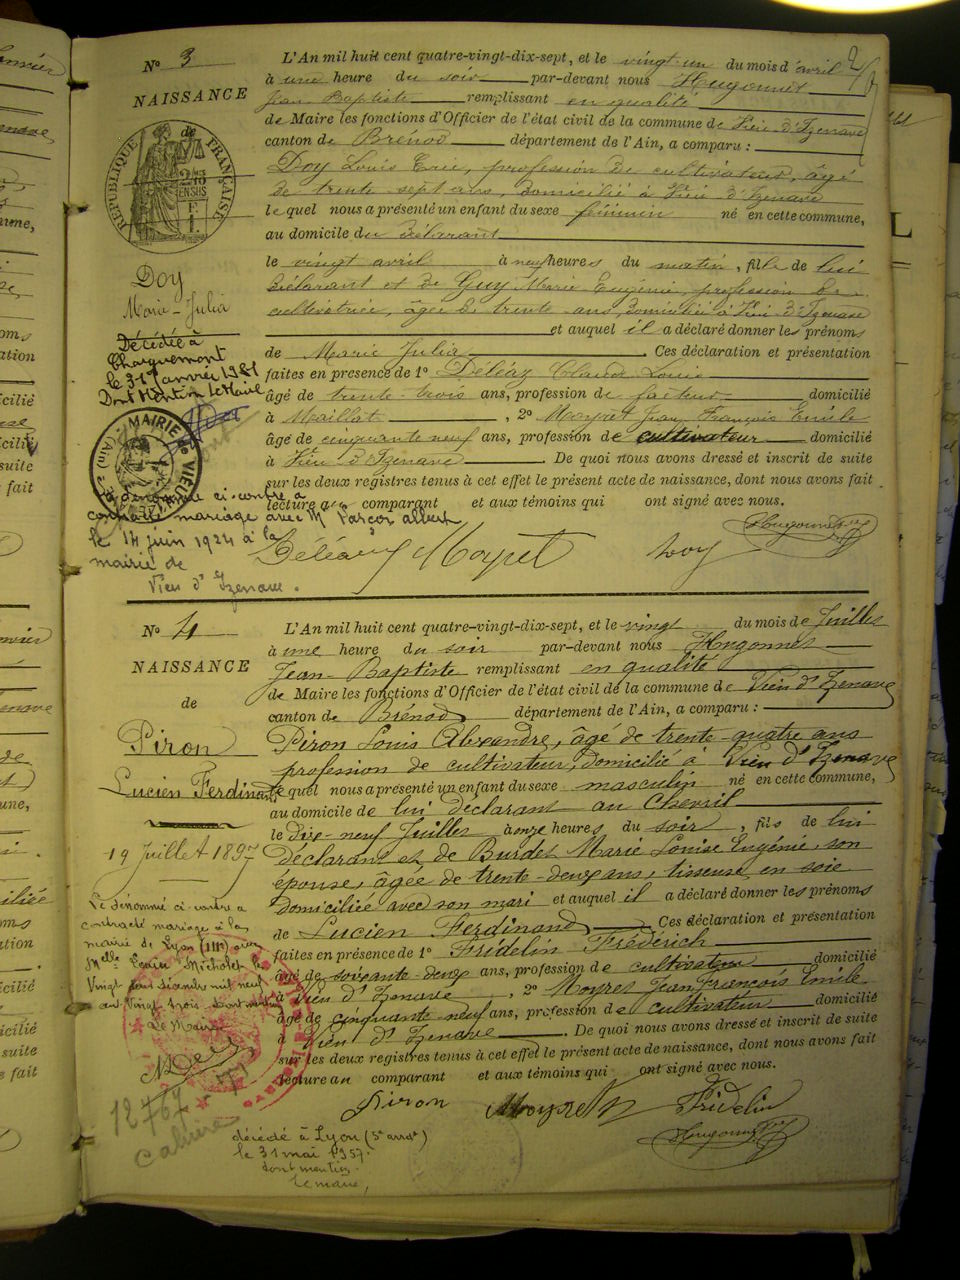 N° 3
NAISSANCE
L'An mil huit cent quatre-vingt-dix-sept, et le vingt-un du mois d'avril
à une heure du soir par-devant nous Hugonnet
Jean Baptiste remplissant en qualité
de Maire les fonctions d'Officier de l'état civil de la commune de Vieu d'Izenave
canton de Brénod département de l'Ain, a comparu :
Doy Louis Eric, profession de cultivateur, âgé
de trente-sept ans, domicilié à Vieu-d'Izenave
le quel nous a présenté un enfant du sexe féminin né en cette commune,
au domicile du déclarant
le vingt avril à neuf heures du matin, fille de lui
déclarant et de Guy Marie Eugénie, profession de
cultivatrice, âgée de trente ans, domiciliée à Vieu-d'Izenave
et auquel il a déclaré donner les prénoms
de Marie Julia Ces déclaration et présentation
faites en présence de 1° Déléaz Claude Louis
âgé de trente-trois ans, profession de facteur domicilié
à Maillat, 2° Moyret Jean François Emile
âgé de cinquante neuf ans, profession de cultivateur domicilié
à Vieu-d'Izenave. De quoi nous avons dressé et inscrit de suite
sur les deux registres tenus à cet effet le présent acte de naissance, dont nous avons fait
lecture au comparant et aux témoins qui ont signé avec nous.
Hugonnet
Déléaz Moyret Doy
RÉPUBLIQUE FRANÇAISE
Doy
Marie-Julia
Décédée à
Charquemont
le 31 janvier 1981
Dont Mention le Maire
MAIRIE de VIEU
(Ain)
dénommée ci-contre a
contracté mariage avec Mr Parçor Albert
le 14 juin 1924 à la
mairie de
Vieu d'Izenave.
N° 4
NAISSANCE
de
Piron
Lucien Ferdinand
19 Juillet 1897
L'An mil huit cent quatre-vingt-dix-sept, et le vingt du mois de Juillet
à une heure du soir par-devant nous Hugonnet
Jean-Baptiste remplissant en qualité
de Maire les fonctions d'Officier de l'état civil de la commune de Vieu d'Izenave
canton de Brénod département de l'Ain, a comparu :
Piron Louis Alexandre, âgé de trente-quatre ans
profession de cultivateur, domicilié à Vieu d'Izenave
le quel nous a présenté un enfant du sexe masculin né en cette commune,
au domicile de lui déclarant au Chevril
le dix-neuf Juillet à onze heures du soir, fils de lui
déclarant et de Burdet Marie Louise Eugénie, son
épouse, âgée de trente-deux ans, tisseuse en soie
domiciliée avec son mari et auquel il a déclaré donner les prénoms
de Lucien Ferdinand Ces déclaration et présentation
faites en présence de 1° Fridelin Fréderich
âgé de soixante-deux ans, profession de cultivateur domicilié
à Vieu d'Izenave, 2° Moyret Jean François Emile
âgé de cinquante-neuf ans, profession de cultivateur domicilié
à Vieu d'Izenave. De quoi nous avons dressé et inscrit de suite
sur les deux registres tenus à cet effet le présent acte de naissance, dont nous avons fait
lecture au comparant et aux témoins qui ont signé avec nous.
Piron Moyret Fridelin
Hugonnet
Le dénommé ci-contre a
contracté mariage à la
mairie de Lyon (III°) avec
Melle Louise Micholet le
Vingt deux
au Vingt trois
Le Maire
12767
décédé à Lyon (5e arrdt)
le 31 mai 1957.
dont mention
le maire,